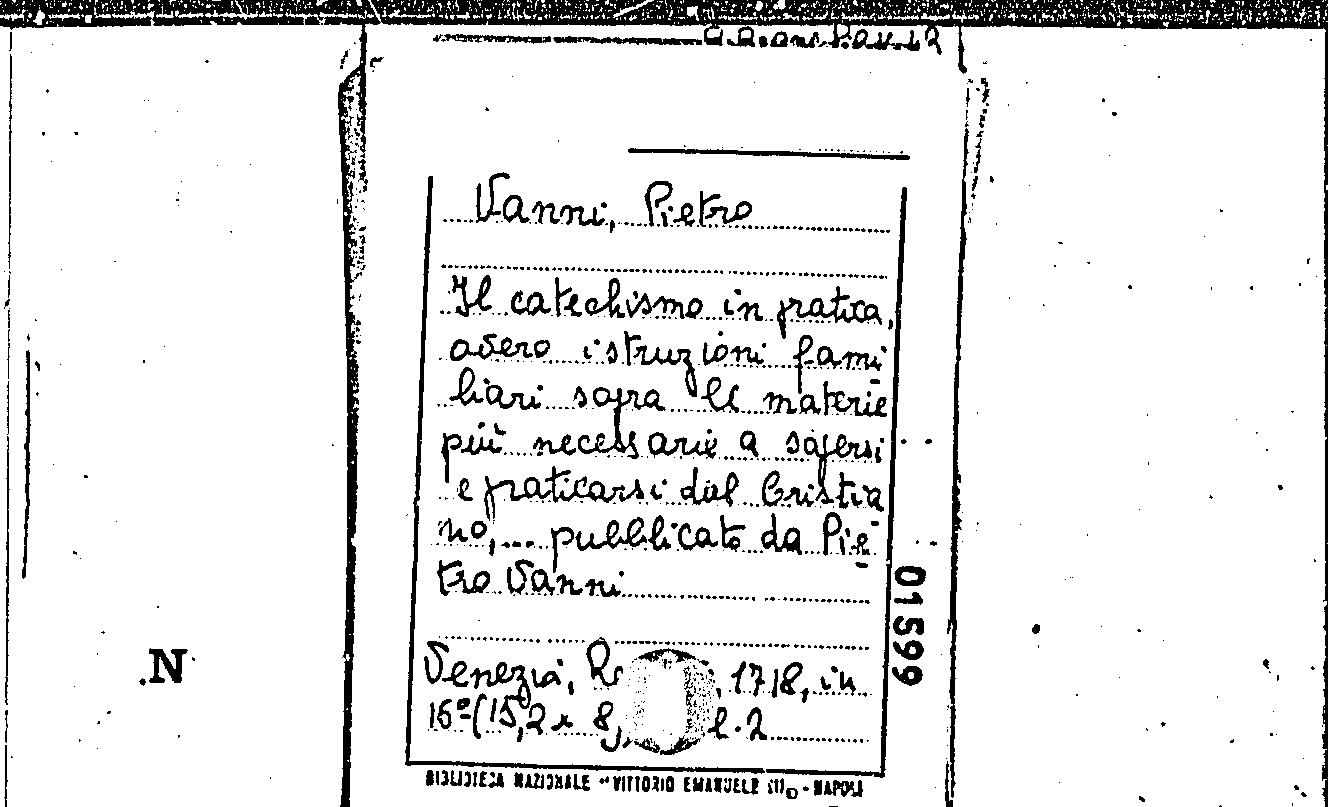 Vanni, Pietro
Il catechismo in pratica,
overo istruzioni fami
liari sopra le materie
più necessarie a sapersi
e praticarsi dal Cristia
no,... pubblicato da Pie
tro Vanni
01599
.N
Venezia, 1718, in
16º (15,2 x 8, l. 2
BIBLIOTECA NAZIONALE "VITTORIO EMANUELE III" - NAPOLI